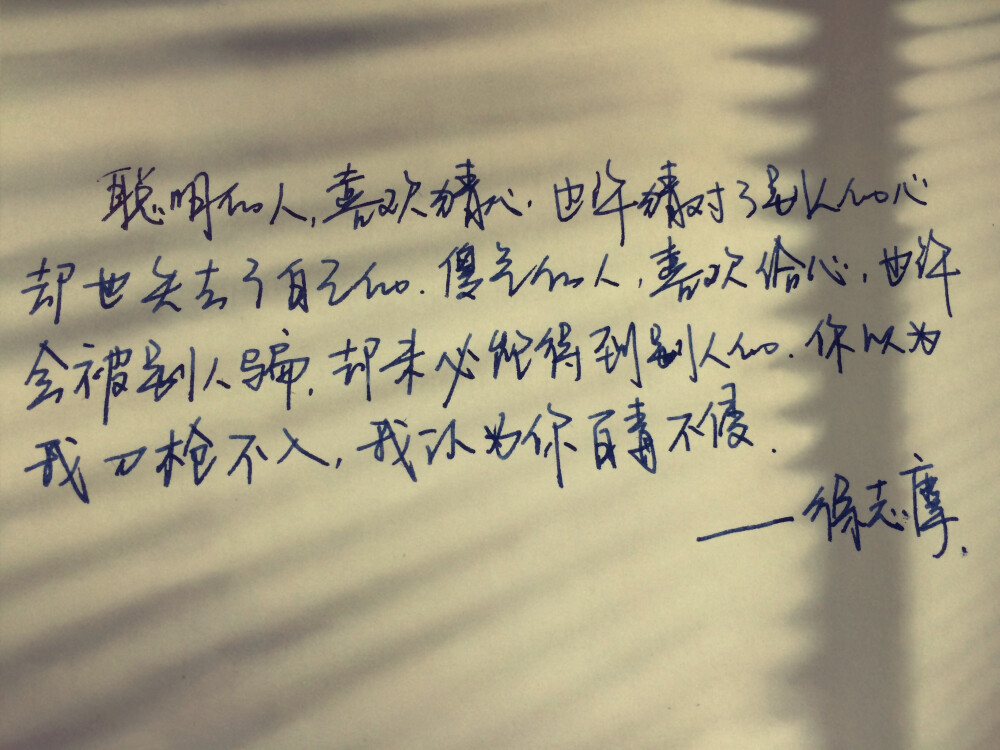 聪明的人,喜欢猜心.也许猜对了别人的心
却也失去了自己的.傻气的人,喜欢给心,也许
会被别人骗.却未必能得到别人的.你以为
我刀枪不入,我以为你百毒不侵.
——徐志摩.